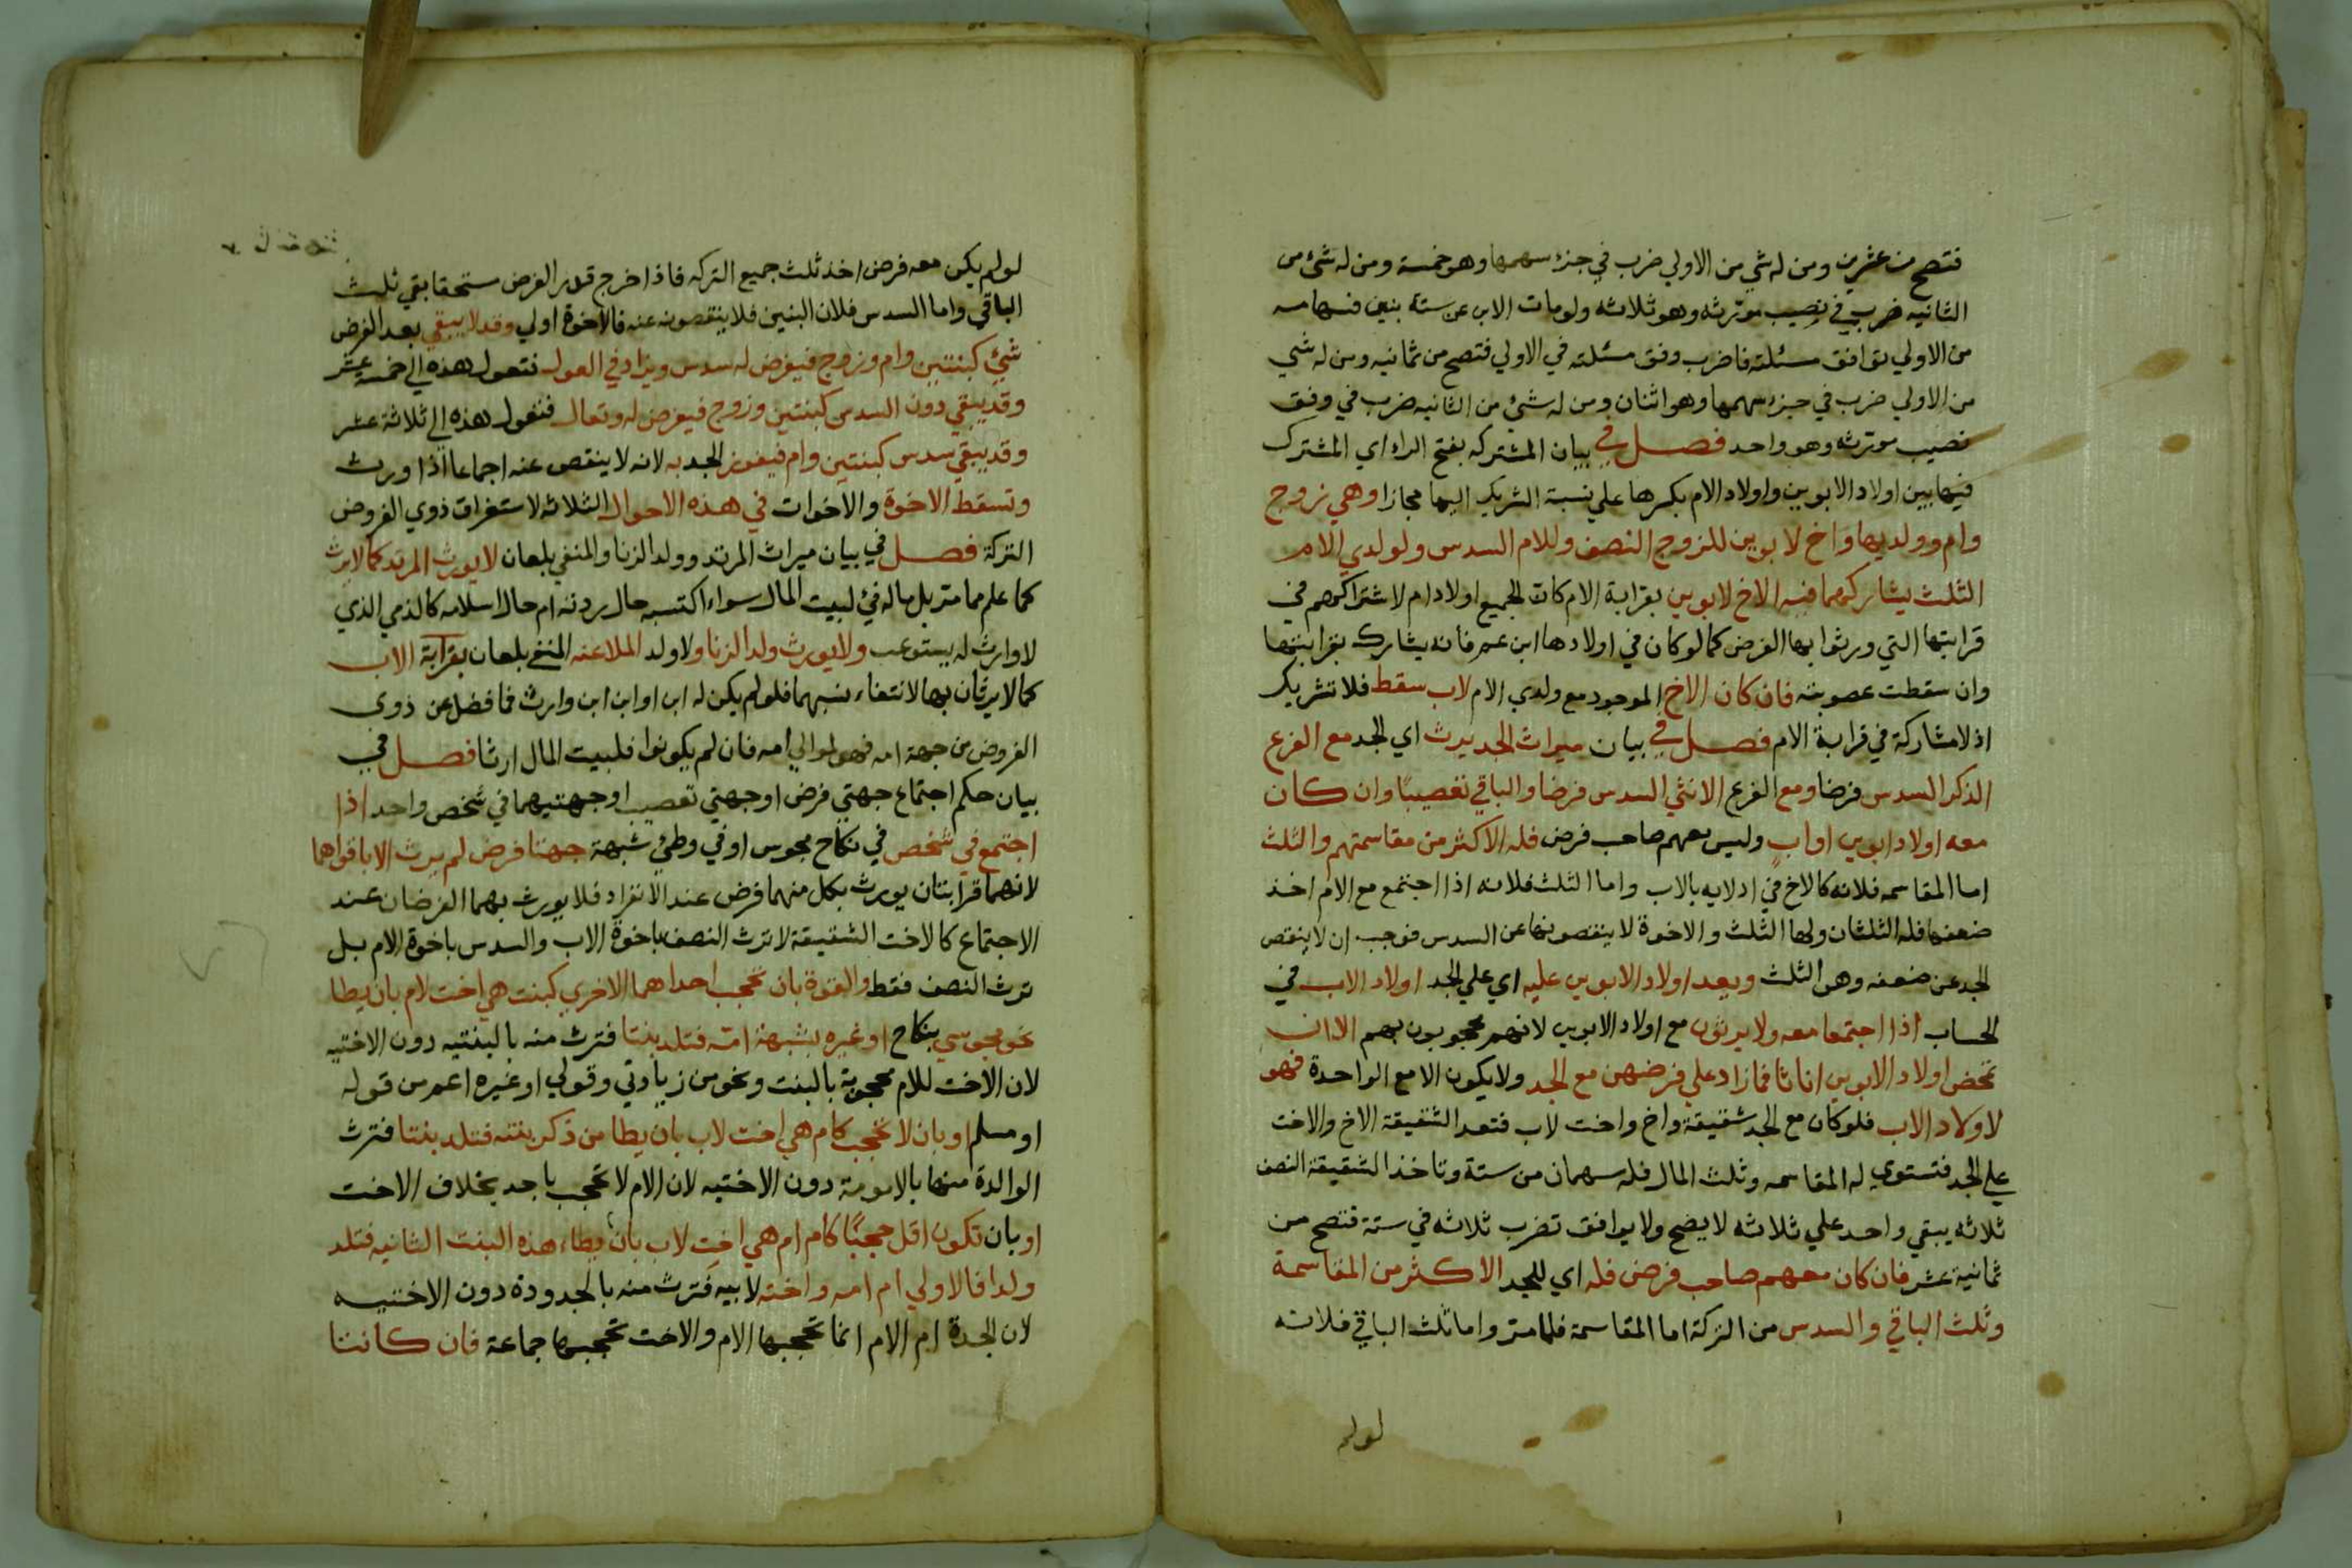 فتصح من عشرين ومن له شي من الاولي ضرب في جزء سهمها وهو خمسة ومن له شئ من
الثانيه ضرب في نصيب مورثه وهو ثلاثه ولو مات الاب عن ستة بنين فسهامه
من الاولي توافق مسئلته فاضرب وفق مسئلته في الاولي فتصح من ثمانيه ومن له شي
من الاولي ضرب في جزء سهمها وهو اثنان ومن له شئ من الثانيه ضرب في وفق
نصيب مورثه وهو واحد فصل في بيان المشتركه بفتح الراء اي المشترك
فيها بين اولاد الابوين واولاد الام بكسرها علي نسبة الشريك اليها مجازا وهي زوج
وام وولديها واخ لابوين للزوج النصف وللام السدس ولولدي الام
الثلث يشاركهما فيه الاخ لابوين بقرابة الام كان الجميع اولاد ام لاشتراكهم في
قرابتها التي ورثوا بها الفرض كما لو كان في اولادها ابن عم فانه يشارك بقرابتها
وان سقطت عصوبته فان كان الاخ الموجود مع ولدي الام لاب سقط فلا تشريك
اذ لا مشاركة في قرابة الام فصل في بيان ميراث الجد يرث اي الجد مع الفرع
الذكر السدس فرضا ومع الفرع الانثي السدس فرضا والباقي تعصيبًا وان كان
معه اولاد ابوين او ابٍ وليس معهم صاحب فرض فله الاكثر من مقاسمتهم والثلث
اما المقاسمه فلانه كالاخ في ادلايه بالاب واما الثلث فلانه اذا اجتمع مع الام اخذ
ضعفها فله الثلثان ولها الثلث والاخوة لا ينقصونها عن السدس فوجب ان لا ينقص
الجد عن ضعفه وهو الثلث ويعد اولاد الابوين عليه اي علي الجد اولاد الاب في
الحساب اذا اجتمعا معه ولا يرثون مع اولاد الابوين لانهم محجوبون بهم الا ان
تمحض اولاد الابوين اناثا فما زاد علي فرضهن مع الجد ولا يكون الا مع الواحدة فهو
لاولاد الاب فلو كان مع الجد شقيقة واخ واخت لاب فتعد الشقيقة الاخ والاخت
علي الجد فتستوي له المقاسمه وثلث المال فله سهمان من ستة وتاخذ الشقيقة النصف
ثلاثه يبقي واحد علي ثلاثه لا يصح ولا يوافق تضرب ثلاثه في ستة فتصح من
ثمانية عشر فان كان معهم صاحب فرض فله اي للجد الاكثر من المقاسمة
وثلث الباقي والسدس من التركة اما المقاسمة فلما متر واما ثلث الباقي فلانه
لو لم
لو لم يكن معه فرض اخذ ثلث جميع التركه فاذا خرج قدر الفرض مستحقا بقي ثلث
الباقي واما السدس فلان البنين فلا ينقصونه عنه فالاخوة اولي وقد لا يبقي بعد الفرض
شئ كبنتين وام وزوج فيفرض له سدس ويزاد في العول فتعول هذه الي خمسة عشر
وقد يبقي دون السدس كبنتين وزوج فيفرض له وتعال فتعول هذه الي ثلاثة عشر
وقد يبقي سدس كبنتين وام فيفوز الجد به لانه لا ينقص عنه اجماعا اذا ورث
وتسقط الاخوة والاخوات في هذه الاحوال الثلاثه لاستغراق ذوي الفروض
التركة فصل في بيان ميراث المرتد وولد الزنا والمنفي بلعان لا يورث المرتد كما لا يرث
كما علم مما متر بل ماله فئ لبيت المال سواء اكتسبه حال ردته ام حال اسلامه كالذمي الذي
لا وارث له يستوعب ولا يورث ولد الزنا ولا ولد الملاعنه المنفي بلعان بقرابة الاب
كما لا يرثان بها لانتفاء نسبهما فلو لم يكن له ابن او ابن ابن وارث فما فضل عن ذوي
الفروض من جهة امه فهو لموالي امه فان لم يكونوا فلبيت المال ارثا فصل في
بيان حكم اجتماع جهتي فرض او جهتي تعصيب او جهتيهما في شخص واحد اذا
اجتمع في شخص في نكاح مجوس او في وطئ شبهة جهتا فرض لم يرث الا باقواهما
لانهما قرابتان يورث بكل منهما فرض عند الانفراد فلا يورث بهما الفرضان عند
الاجتماع كالاخت الشقيقة لا ترث النصف باخوة الاب والسدس باخوة الام بل
ترث النصف فقط والقوة بان تحجب احداهما الاخري كبنت هي اخت لام بان يطا
نحو مجوسي بنكاح او غيره بشبهة امه فتلد بنتا فترث منه بالبنتيه دون الاختيه
لان الاخت للام محجوبة بالبنت ونحو من زيادتي وقولي او غيره اعم من قوله
او مسلم او بان لا تحجب كام هي اخت لاب بان يطا من ذكر بنته فتلد بنتا فترث
الوالدة منها بالامومة دون الاختيه لان الام لا تحجب باحد بخلاف الاخت
او بان تكون اقل حجبًا كام ام هي اختٍ لاب بان يطاء هذه البنت الثانيه فتلد
ولدا فالاولي ام امه واخته لابيه فترث منه بالجدودة دون الاختيه
لان الجدة ام الام انما تحجبها الام والاخت تحجبها جماعة فان كانتا